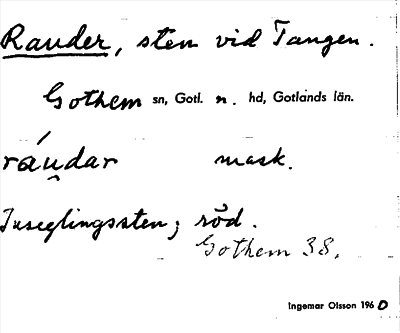 Rauder, sten vid Tangen.
Gothem sn, Gotl. n. hd, Gotlands län.
ráu̯dar mask.
Inseglingssten; röd.
Gothem 38.
Ingemar Olsson 196 0